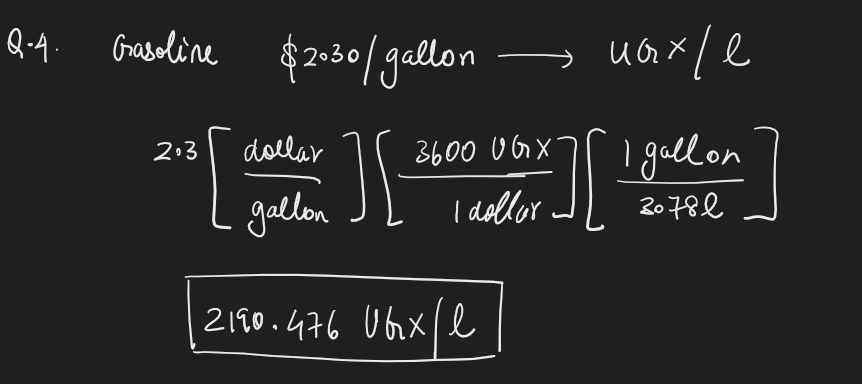 Q.4. Gasoline $2.30/gallon → UGX/l
2.3 [dollar/gallon] [3600 UGX/1 dollar] [1 gallon/3.78l]
2190.476 UGX/l